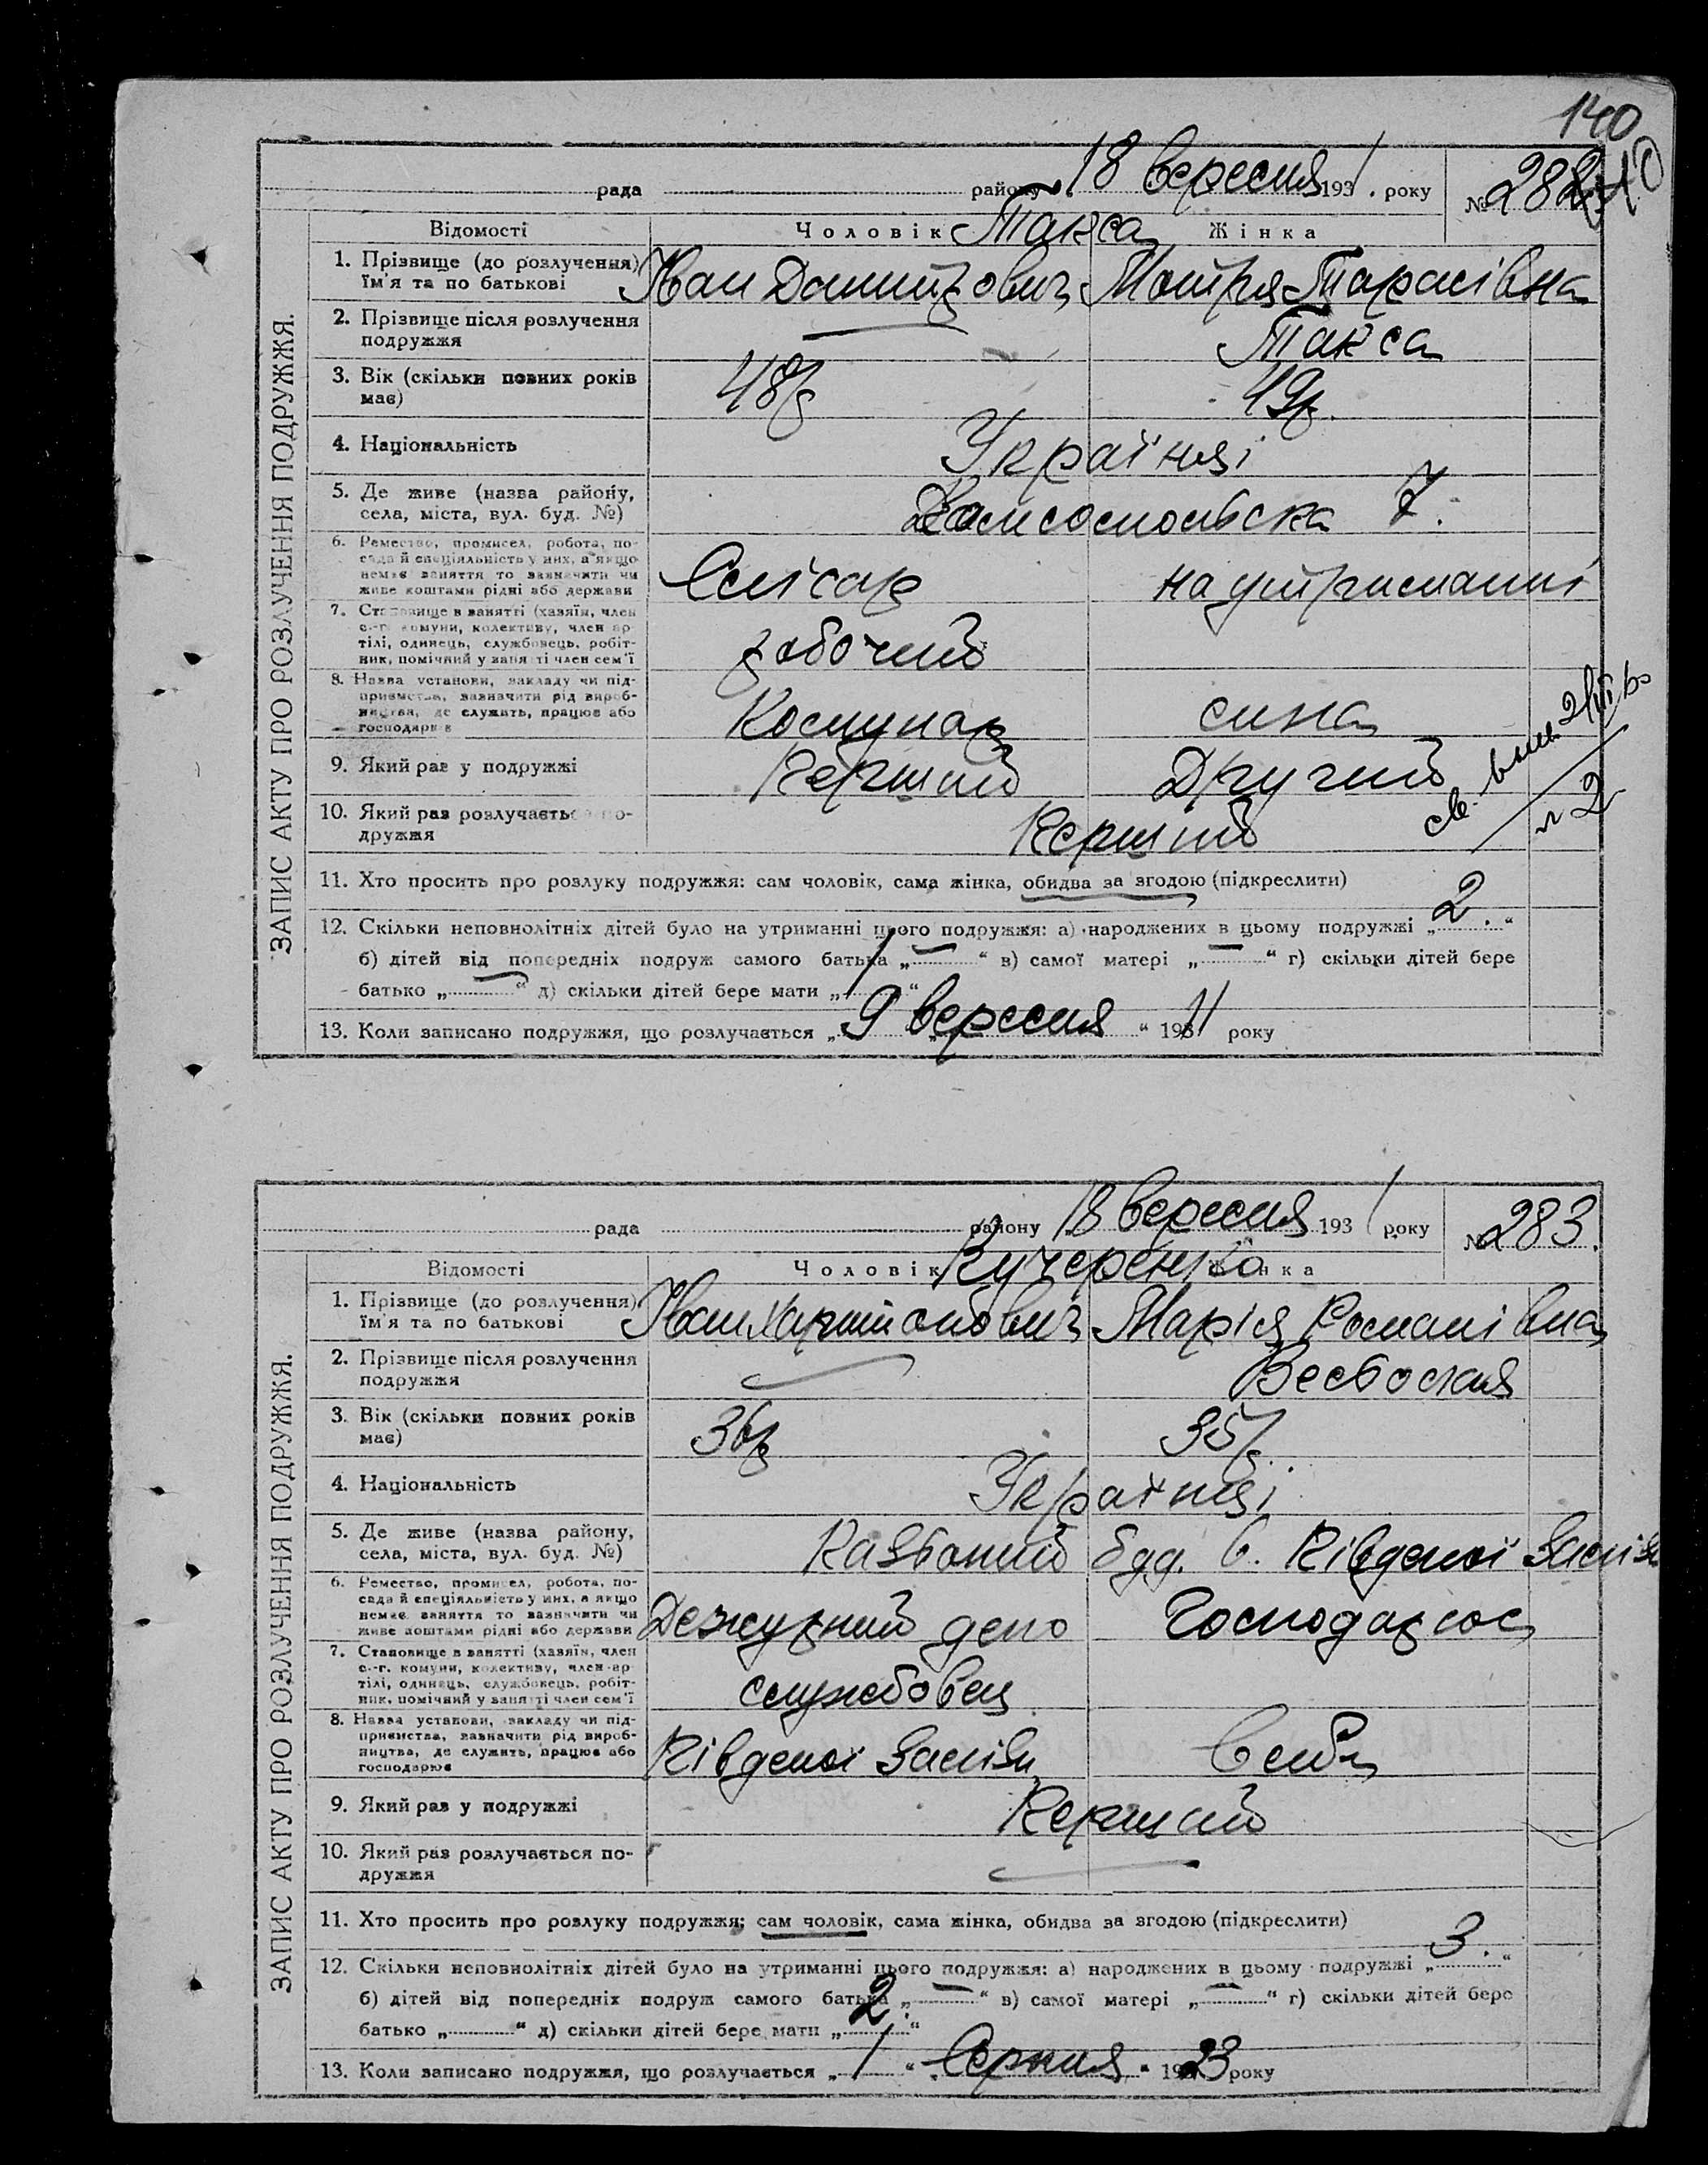 140
рада района 18 вересня 1931 року № 282
Відомості Чоловік Такса Жінка
1. Прізвище (до розлучення) Іван Дмитрович Мотря Тарасівна
ім'я та по батькові
2. Прізвище після розлучення Такса
подружжя
3. Вік (скільки повних років 48р 49р.
має)
4. Національність Українці
5. Де живе (назва району, Комсомольська 7.
села, міста, вул. буд. №)
6. Ремество, промисел, робота, по-
сада й спеціяльність у них, а якщо Слісар на утриманні
немає заняття то зазначити чи
живе коштами рідні або держави
7. Становище в занятті (хазяїн, член
с.-г. комуни, колективу, член ар-
тілі, одинець, службовець, робіт- робочий
ник, помічний у занятті член сем'ї
8. Назва установи, закладу чи під-
приємства, зазначити рід вироб- Комунар сина
ництва, де служить, працює або
господарює
9. Який раз у подружжі Перший Другий
10. Який раз розлучається по- Перший
дружжя
11. Хто просить про розлуку подружжя: сам чоловік, сама жінка, обидва за згодою (підкреслити)
12. Скільки неповнолітніх дітей було на утриманні цього подружжя: а) народжених в цьому подружжі „2.“
б) дітей від попередніх подруж самого батька „—“ в) самої матері „—“ г) скільки дітей бере
батько „—“ д) скільки дітей бере мати „1“
13. Коли записано подружжя, що розлучається „9 вересня“ 1911 року
ЗАПИС АКТУ ПРО РОЗЛУЧЕННЯ ПОДРУЖЖЯ.
рада району 18 вересня 1931 року № 283.
Відомості Чоловік Кучеренко Жінка
1. Прізвище (до розлучення) Іван Харитонович Марія Романівна
ім'я та по батькові
2. Прізвище після розлучення
подружжя
3. Вік (скільки повних років 36р 35р.
має)
4. Національність Українці
5. Де живе (назва району, буд. 6. Південої
села, міста, вул. буд. №)
6. Ремество, промисел, робота, по-
сада й спеціяльність у них, а якщо Дежурний депо Господарює
немає заняття то зазначити чи
живе коштами рідні або держави
7. Становище в занятті (хазяїн, член
с.-г. комуни, колективу, член ар-
тілі, одинець, службовець, робіт- службовец
ник, помічний у занятті член сем'ї
8. Назва установи, закладу чи під-
приємства, зазначити рід вироб- Південої
ництва, де служить, працює або
господарює
9. Який раз у подружжі Перший
10. Який раз розлучається по-
дружжя
11. Хто просить про розлуку подружжя: сам чоловік, сама жінка, обидва за згодою (підкреслити)
12. Скільки неповнолітніх дітей було на утриманні цього подружжя: а) народжених в цьому подружжі „3.“
б) дітей від попередніх подруж самого батька „—“ в) самої матері „—“ г) скільки дітей бере
батько „“ д) скільки дітей бере мати „2.“
13. Коли записано подружжя, що розлучається „1“ „Серпня“ 1923 року
ЗАПИС АКТУ ПРО РОЗЛУЧЕННЯ ПОДРУЖЖЯ.